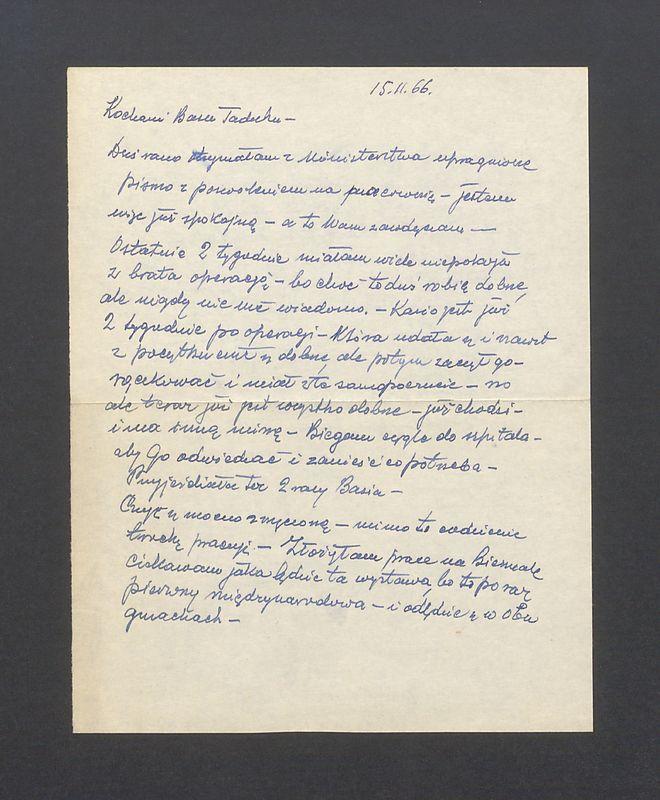 15.II.66.
Kochani Basiu Tadechu –
Dziś rano otrzymałam z Ministerstwa upragnione
pismo z pozwoleniem na pracownię – jestem
więc już spokojną – a to Wam zawdzięczam —
Ostatnie 2 tygodnie miałam wiele niepokoju
z brata operacją – bo choć to dziś robią dobrze
ale nigdy nic nie wiadomo. – Kazio jest już
2 tygodnie po operacji – która udała się i nawet
z początku czuł się dobrze, ale potym zaczął go-
rączkować i miał złe samopoczucie – no
ale teraz już jest wszystko dobrze – już chodzi –
i ma inną minę – Biegam ciągle do szpitala –
aby Go odwiedzać i zanieść co potrzeba –
Przyjeżdżała też 2 razy Basia –
Czuję się mocno zmęczoną – mimo to codziennie
troszkę pracuję. – Złożyłam prace na Biennale
ciekawam jaka będzie ta wystawa, bo to po raz
pierwszy międzynarodowa – i odbędzie się w obu
gmachach –